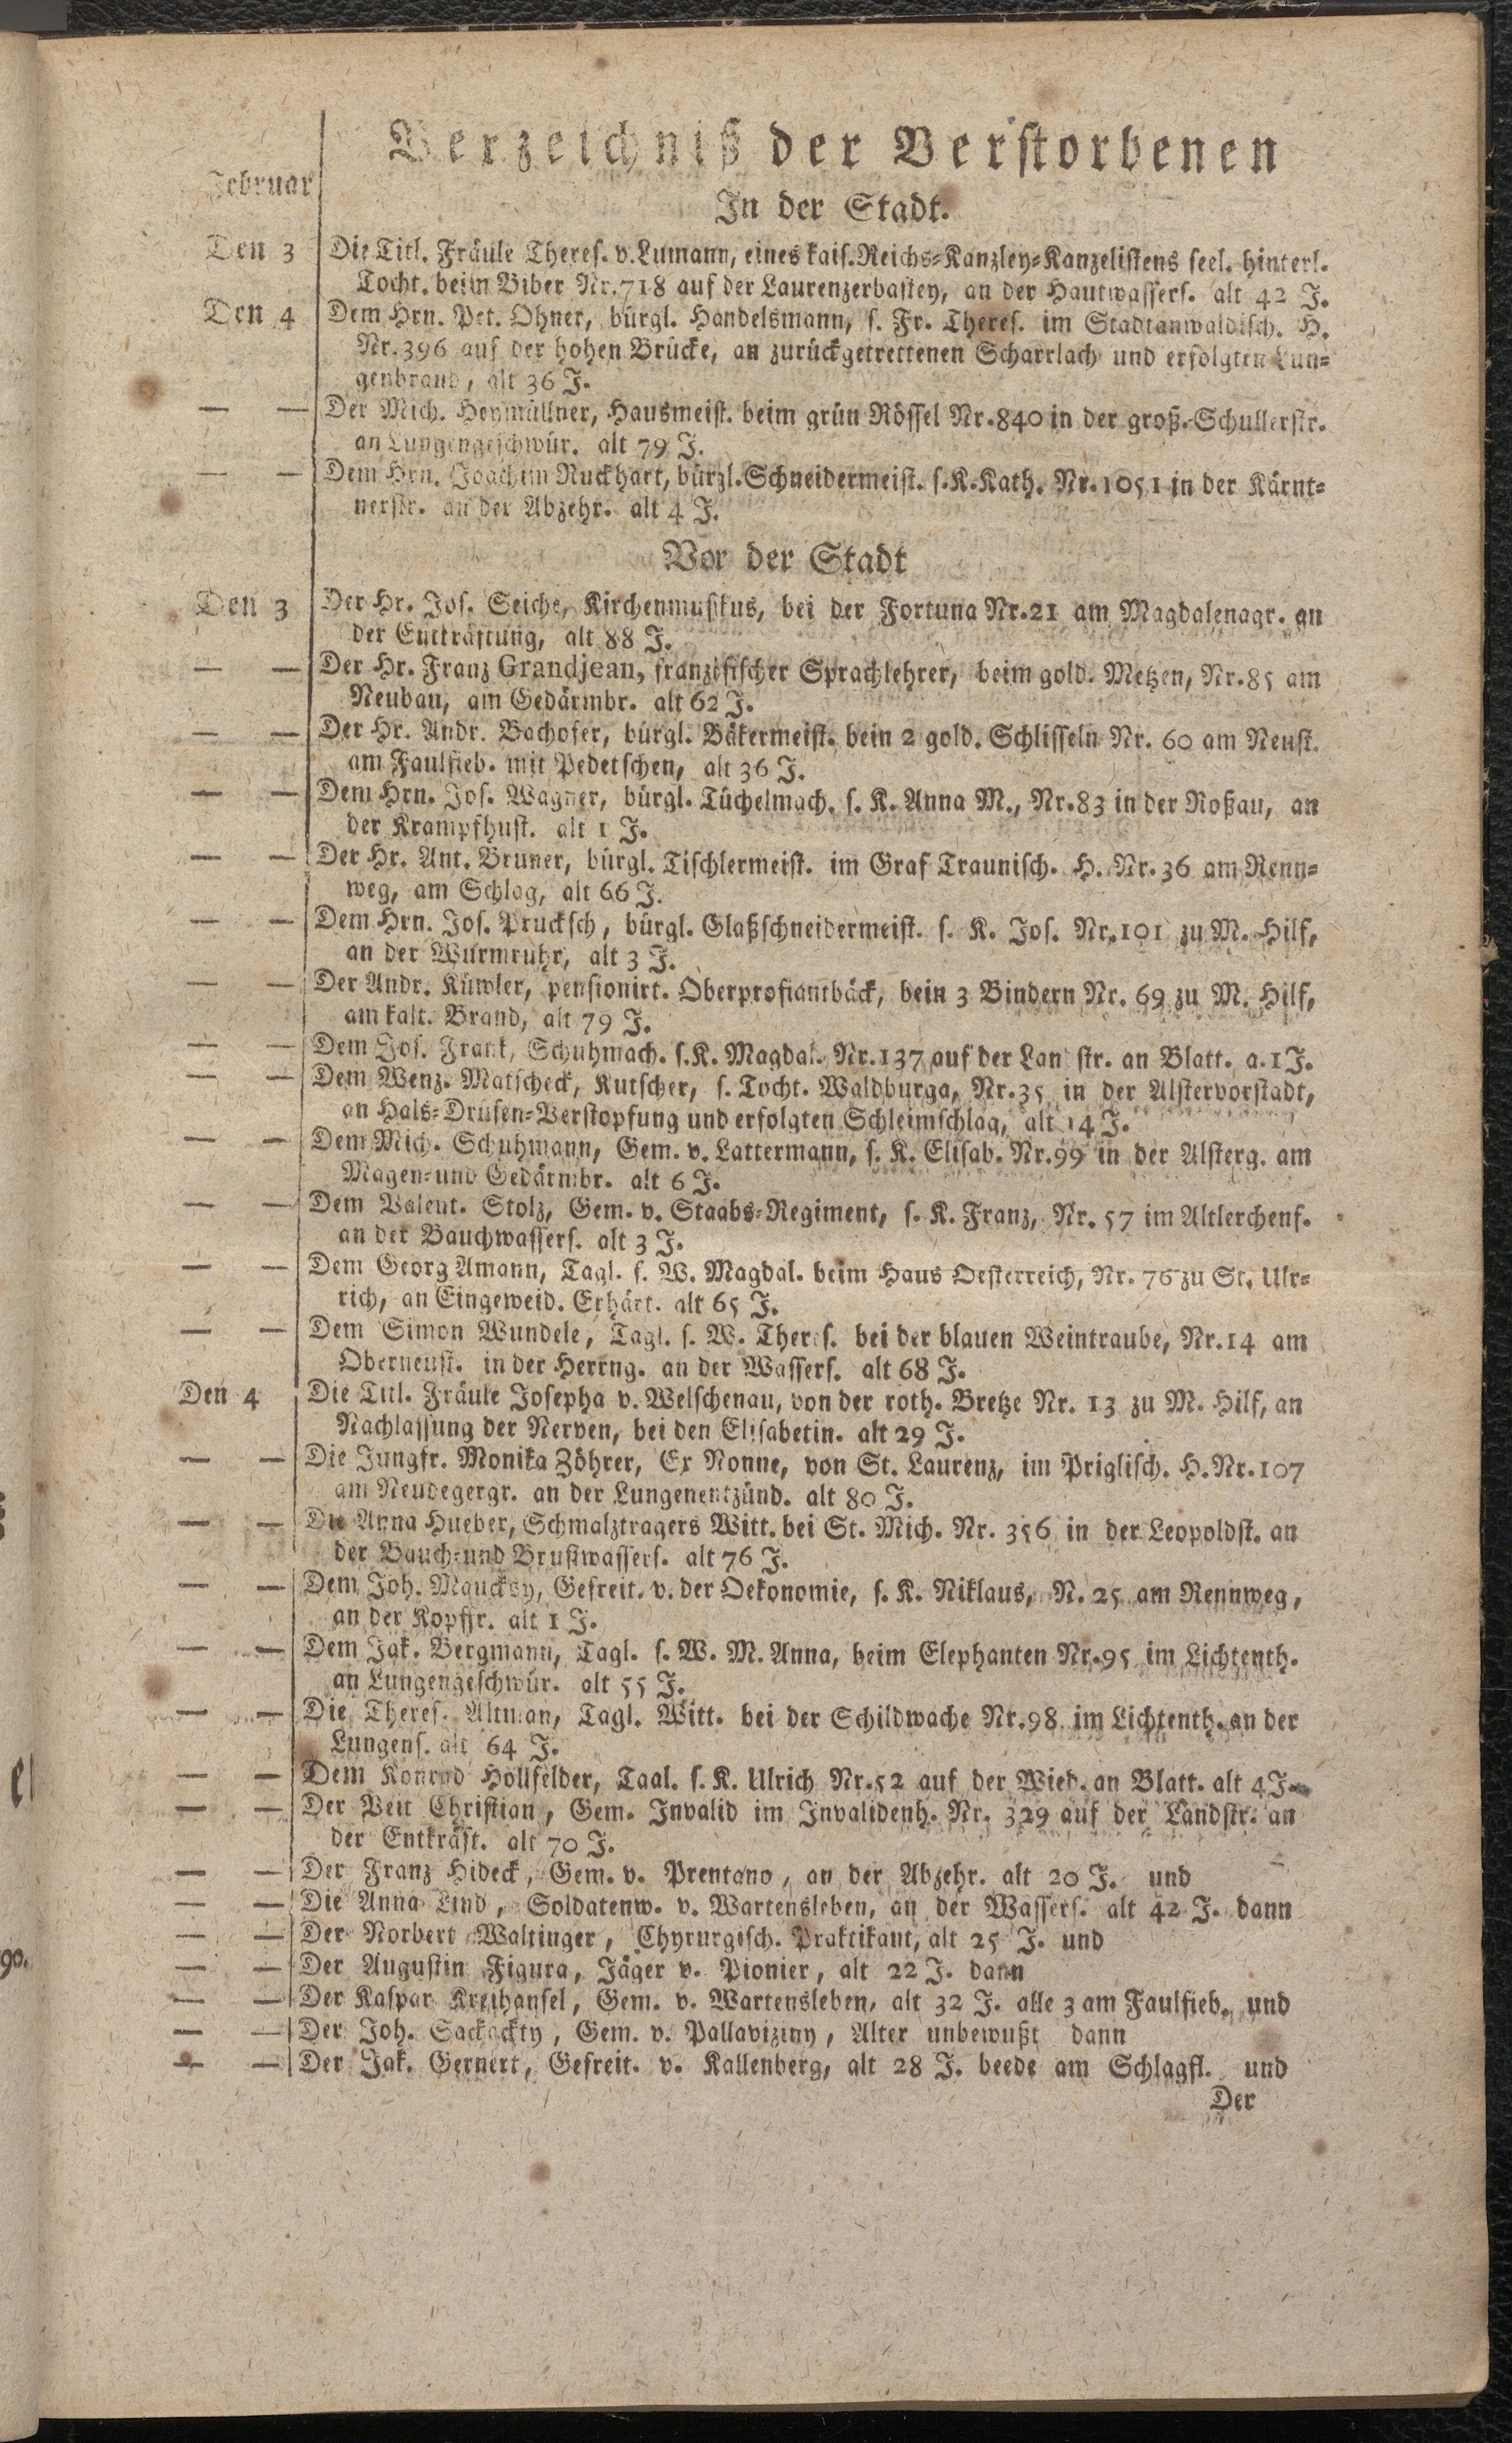 Verzeichniß der Verstorbenen
Februar
In der Stadt.
Den 3 Die Titl. Fräule Theres. v. Lumann, eines kais. Reichs-Kanzley-Kanzelistens seel. hinterl.
Tocht. beim Biber Nr. 718 auf der Laurenzerbastey, an der Hautwassers. alt 42 J.
Den 4 Dem Hrn. Pet. Ohner, bürgl. Handelsmann, s. Fr. Theres. im Stadtanwaldisch. H.
Nr. 396 auf der hohen Brücke, an zurückgetrettenen Scharrlach und erfolgten Lun-
genbrand, alt 36 J.
— — Der Mich. Heymüllner, Hausmeist. beim grün Rössel Nr. 840 in der groß. Schullerstr.
an Lungengeschwür. alt 79 J.
— — Dem Hrn. Joachim Ruckhart, bürgl. Schneidermeist. s. K. Kath. Nr. 1051 in der Kärnt-
nerstr. an der Abzehr. alt 4 J.
Vor der Stadt
Den 3 Der Hr. Jos. Seiche, Kirchenmusikus, bei der Fortuna Nr. 21 am Magdalenagr. an
der Entkräftung, alt 88 J.
— — Der Hr. Franz Grandjean, franzisischer Sprachlehrer, beim gold. Metzen, Nr. 85 am
Neubau, am Gedärmbr. alt 62 J.
— — Der Hr. Andr. Bachofer, bürgl. Bäkermeist. bein 2 gold. Schlisseln Nr. 60 am Neust.
am Faulfieb. mit Pedetschen, alt 36 J.
— — Dem Hrn. Jos. Wagner, bürgl. Tüchelmach. s. K. Anna M., Nr. 83 in der Roßau, an
der Krampfhust. alt 1 J.
— — Der Hr. Ant. Bruner, bürgl. Tischlermeist. im Graf Traunisch. H. Nr. 36 am Renn-
weg, am Schlag, alt 66 J.
— — Dem Hrn. Jos. Prucksch, bürgl. Glaßschneidermeist. s. K. Jos. Nr. 101 zu M. Hilf,
an der Wurmruhr, alt 3 J.
— — Der Andr. Küwler, pensionirt. Oberprofiantbäck, bein 3 Bindern Nr. 69 zu M. Hilf,
am kalt. Brand, alt 79 J.
— — Dem Jos. Frank, Schuhmach. s. K. Magdal. Nr. 137 auf der Lan str. an Blatt. a. 1 J.
— — Dem Wenz. Matscheck, Kutscher, s. Tocht. Waldburga, Nr. 35 in der Alstervorstadt,
an Hals-Drüsen-Verstopfung und erfolgten Schleimschlag, alt 14 J.
— — Dem Mich. Schuhmann, Gem. v. Lattermann, s. K. Elisab. Nr. 99 in der Alsterg. am
Magen- und Gedärmbr. alt 6 J.
— — Dem Valent. Stolz, Gem. v. Staabs-Regiment, s. K. Franz, Nr. 57 im Altlerchenf.
an der Bauchwassers. alt 3 J.
— — Dem Georg Amann, Tagl. s. W. Magdal. beim Haus Oesterreich, Nr. 76 zu St. Ulr-
rich, an Eingeweid. Erhärt. alt 65 J.
— — Dem Simon Wundele, Tagl. s. W. Theres. bei der blauen Weintraube, Nr. 14 am
Oberneust. in der Herrng. an der Wassers. alt 68 J.
Den 4 Die Titl. Fräule Josepha v. Welschenau, von der roth. Bretze Nr. 13 zu M. Hilf, an
Nachlassung der Nerven, bei den Elisabetin. alt 29 J.
— — Die Jungfr. Monika Zöhrer, Ex Nonne, von St. Laurenz, im Priglisch. H. Nr. 107
am Neudegergr. an der Lungenentzünd. alt 80 J.
— — Die Anna Hueber, Schmalztragers Witt. bei St. Mich. Nr. 356 in der Leopoldst. an
der Bauch- und Brustwassers. alt 76 J.
— — Dem Joh. Gefreit. v. der Oekonomie, s. K. Niklaus, N. 25 am Rennweg,
an der Kopffr. alt 1 J.
— — Dem Jak. Bergmann, Tagl. s. W. M. Anna, beim Elephanten Nr. 95 im Lichtenth.
an Lungengeschwür. alt 55 J.
— — Die Theres. Altman, Tagl. Witt. bei der Schildwache Nr. 98 im Lichtenth. an der
Lungens. alt 64 J.
— — Dem Konrad Höllfelder, Taal. s. K. Ulrich Nr. 52 auf der Wied. an Blatt. alt 4 J.
— — Der Veit Christian, Gem. Invalid im Invalidenh. Nr. 329 auf der Landstr. an
der Entkräft. alt 70 J.
— — Der Franz Hideck, Gem. v. Prentano, an der Abzehr. alt 20 J. und
— — Die Anna Lind, Soldatenw. v. Wartensleben, an der Wassers. alt 42 J. dann
— — Der Norbert Waltinger, Chyrurgisch. Praktikant, alt 25 J. und
— — Der Augustin Figura, Jäger v. Pionier, alt 22 J. dann
— — Der Kaspar Kreihansel, Gem. v. Wartensleben, alt 32 J. alle 3 am Faulfieb. und
— — Der Joh. Sackackty, Gem. v. Pallaviziny, Alter unbewußt dann
— — Der Jak. Gernert, Gefreit. v. Kallenberg, alt 28 J. beede am Schlagfl. und
Der